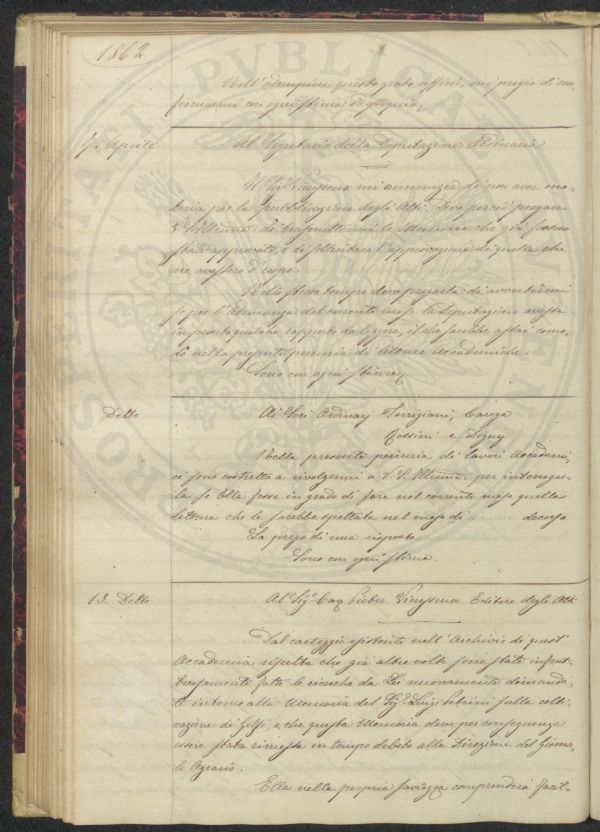 1862
Nell'adempiere questo grato ufficio, mi pregio di con-
fermarmi con ogni stima ed ossequio,
9. Aprile
Al Segretario della Deputazione Ordinaria
Il Sig. Vieusseux mi annunzia di non aver ma-
teria per la pubblicazione degli Atti. Devo perciò pregare
V. S. Illma. di trasmettermi le Memorie che già fossero
state approvate, e di sollecitare l'approvazione di quelle che
ne avessero d'uopo.
Nello stesso tempo devo pregarla di avvertirmi
se per l'Adunanza del corrente mese la Deputazione avesse
in pronto qualche rapporto da leggere, il che sarebbe assai como-
do nella presente penuria di letture accademiche.
Sono con ogni stima
Detto
Ai Soci Ordinarj Torrigiani, Carega
Rossini e Digny
Nella presente penuria di lavori Accademi-
ci sono costretto a rivolgermi a V. S. Illma. per interrogar-
la se Ella fosse in grado di fare nel corrente mese quella
lettura che le sarebbe spettata nel mese di ...... decorso
La prego di una risposta
Sono con ogni stima
13. Detto
Al Sig. Cav. Pietro Vieusseux Editore degli Atti
Dal carteggio esistente nell'Archivio di quest'
Accademia risulta che già altre volte sono state infrut-
tuosamente fatte le ricerche da Lei nuovamente domanda-
te intorno alla Memoria del Sig. Luigi Petrini sulla colti-
vazione de' Gelsi, e che questa Memoria deve per conseguenza
essere stata rimessa in tempo debito alla Direzione del Giorna-
le Agrario.
Ella nella propria saviezza comprenderà facil-